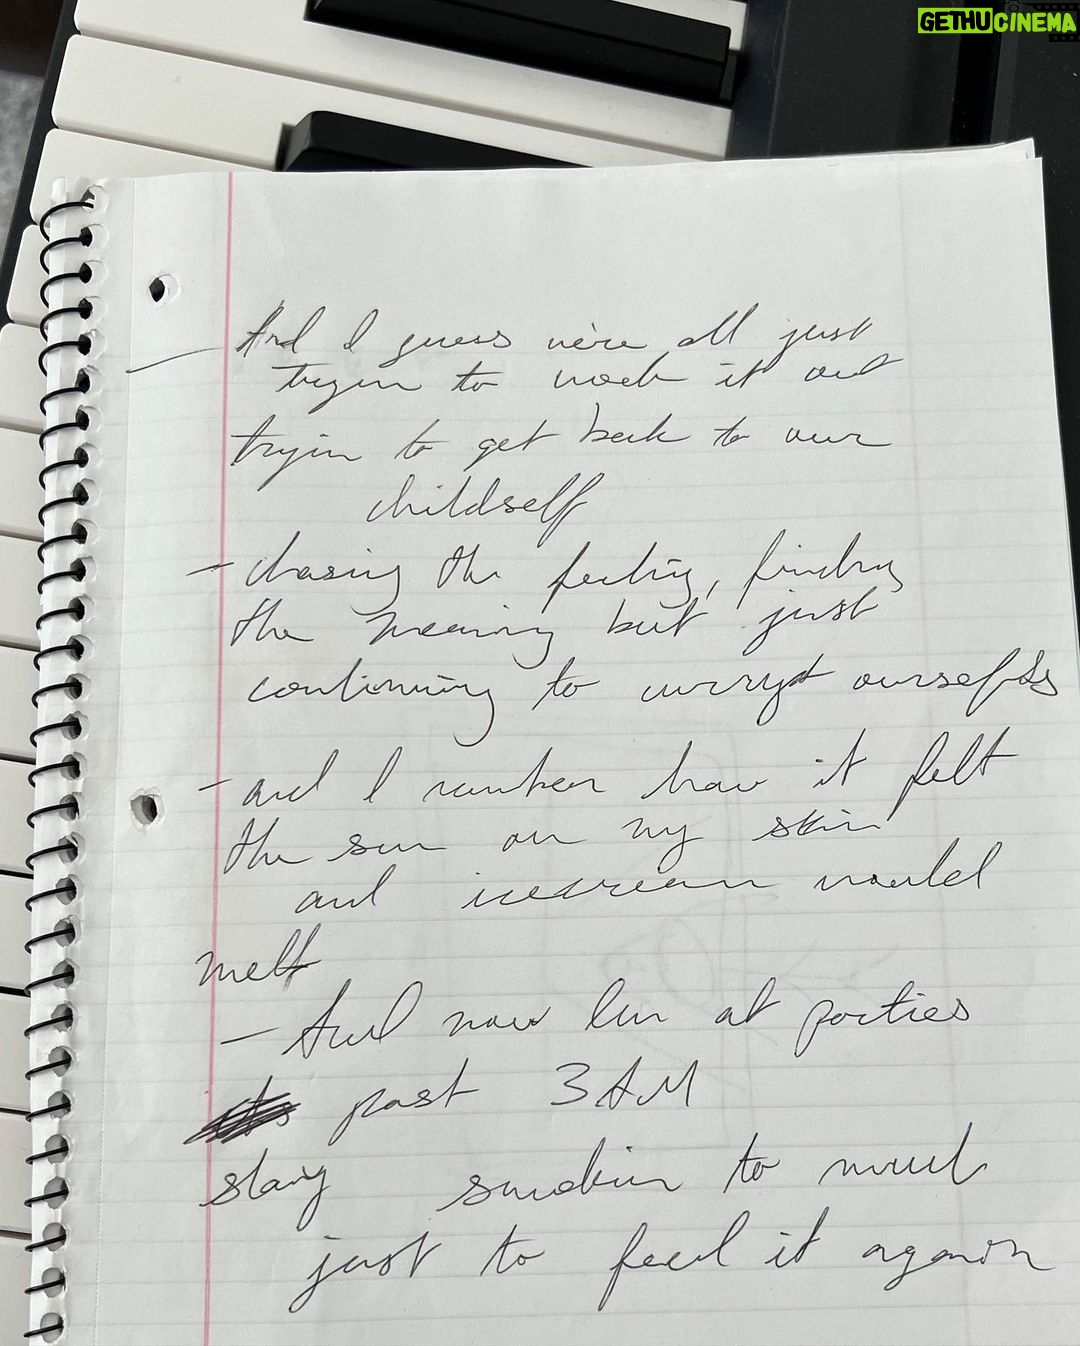 GETHUCINEMA
And I guess we're all just
tryin to work it out
tryin to get back to our
childself
- chasing the feeling, finding
the meaning but just
continuing to ourselfs
- and I how it felt
the sun on my skin
and icecream would
melt
- And now I'm at parties
past 3 AM
stay smokin to much
just to feel it again